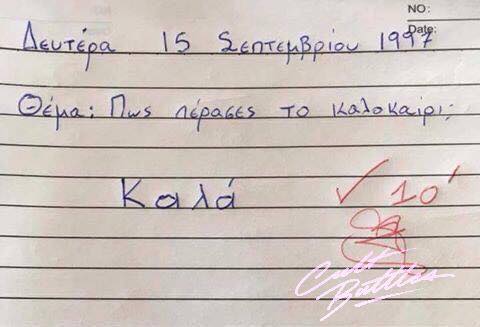 NO:
Date:
Δευτέρα 15 Σεπτεμβρίου 1997
Θέμα: Πως πέρασες το καλοκαίρι;
Καλά ✓ 10'
Cult
Battles